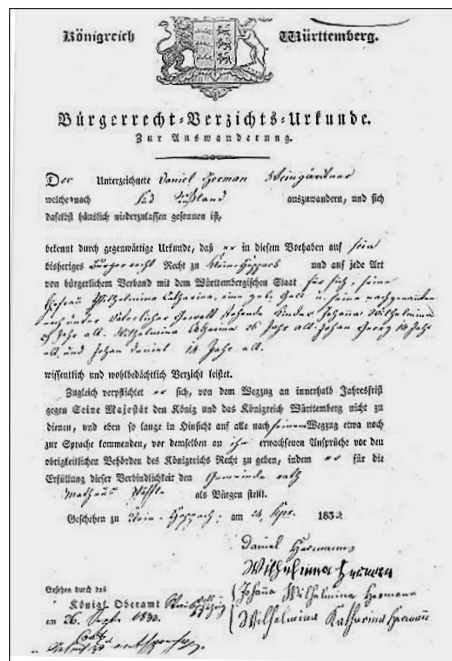 Königreich Württemberg.
Bürgerrecht-Verzichts-Urkunde.
Zur Auswanderung.
Der Unterzeichnete Daniel Herman Weingärtner
welcher nach Süd Rußland auszuwandern, und sich
daselbst häuslich niederzulassen gesonnen ist,
bekennt durch gegenwärtige Urkunde, daß er in diesem Vorhaben auf sein
bisheriges Bürgerrecht Recht zu Klein Heppach und auf jede Art
von bürgerlichem Verband mit dem Württembergischen Staat für sich, seine
Ehefrau Wilhelmina Catharina, eine geb. u. seine nachgenannten
noch unter Väterlicher Gewalt stehende Kinder Johanna Wilhelmina
Jahr alt. Wilhelmina Catharina 26 Jahr alt. Johan Georg Jahr
alt, und Johan Daniel 14 Jahr alt.
wissentlich und wohlbedächtlich Verzicht leistet.
Zugleich verpflichtet er sich, von dem Wegzug an innerhalb Jahresfrist
gegen Seine Majestät den König und das Königreich Württemberg nicht zu
dienen, und eben so lange in Hinsicht auf alle nach seinem Wegzug etwa noch
zur Sprache kommenden, vor demselben an ihn erwachsenen Ansprüche vor den
obrigkeitlichen Behörden des Königreichs Recht zu geben, indem er für die
Erfüllung dieser Verbindlichkeit den Gemeinde rath
Mathäus als Bürgen stellt.
Geschehen zu Klein Heppach: am 24 Apr. 183
Daniel Hermann
Wilhelmina Herman
Johana Wilhelmina Hermann
Wilhelmina Katharina Hermann
Gesehen durch das
Königl. Oberamt Waiblingen
am 26. Sept. 183